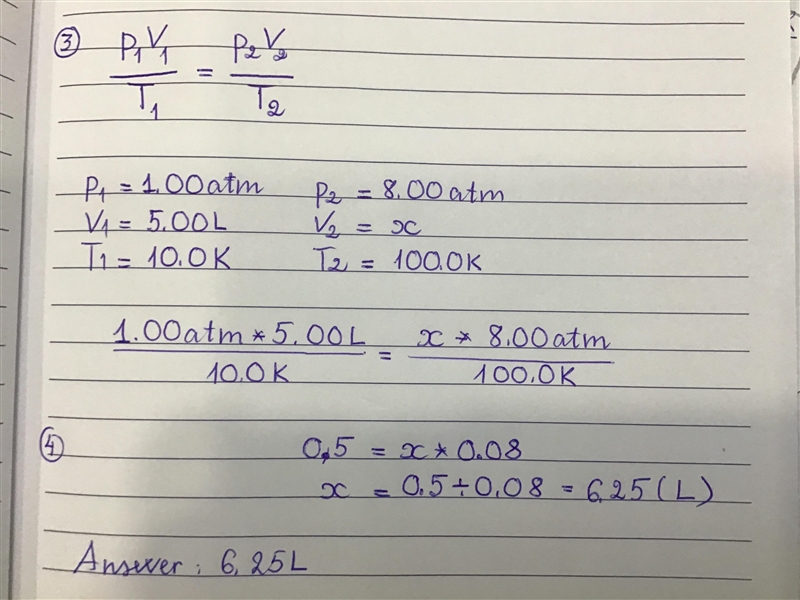 ③ P₁V₁/T₁ = P₂V₂/T₂
P₁ = 1.00atm P₂ = 8.00atm
V₁ = 5.00L V₂ = x
T₁ = 10.0K T₂ = 100.0K
1.00atm * 5.00L/10.0K = x * 8.00atm/100.0K
④ 0,5 = x * 0.08
x = 0.5 ÷ 0.08 = 6.25 (L)
Answer : 6,25L